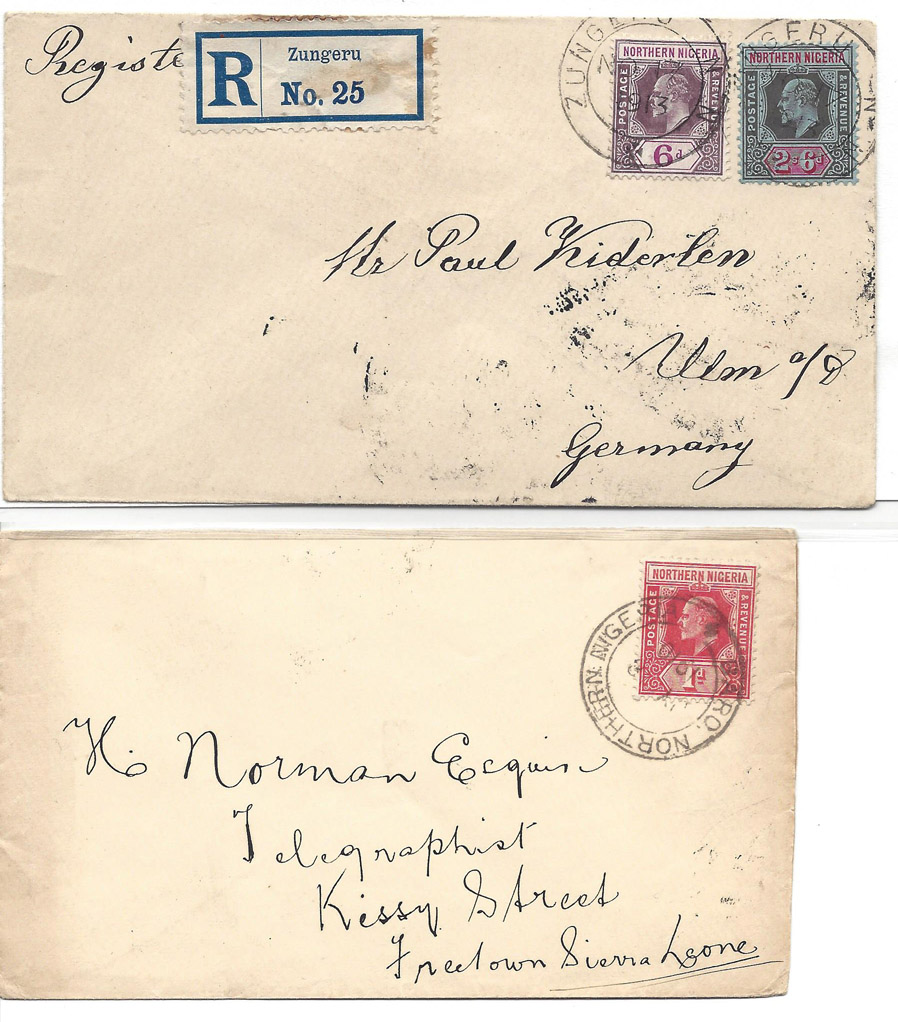 Registe
R
Zungeru
No. 25
ZUNGERU
1913
NORTHERN NIGERIA
POSTAGE & REVENUE
6d
NORTHERN NIGERIA
POSTAGE & REVENUE
2s6d
Mr Paul Kiderlen
Ulm a/D
Germany
NORTHERN NIGERIA
POSTAGE & REVENUE
1d
NORTHERN NIGE
H. Norman Esquire
Telegraphist
Kissy Street
Freetown Sierra Leone